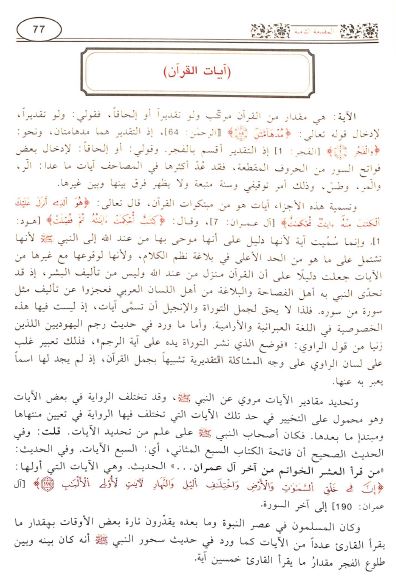 77
المقدمة الثامنة
(آيات القرآن)
الآية: هي مقدار من القرآن مركّب ولو تقديراً أو إلحاقاً، فقولي: ولو تقديراً،
لإدخال قوله تعالى: ﴿مُدْهَامَّتَانِ﴾ [الرحمٰن: 64]، إذ التقدير هما مدهامتان، ونحو:
﴿وَالْفَجْرِ﴾ [الفجر: 1] إذ التقدير أقسم بالفجر. وقولي: أو إلحاقاً: لإدخال بعض
فواتح السور من الحروف المقطعة، فقد عُدّ أكثرها في المصاحف آيات ما عدا: الٓر،
والٓمر، وطسٓ، وذلك أمر توقيفي وسنة متبعة ولا يظهر فرق بينها وبين غيرها.
وتسمية هذه الأجزاء آيات هو من مبتكرات القرآن، قال تعالى: ﴿هُوَ الَّذِىٓ أَنزَلَ عَلَيْكَ
الْكِتَٰبَ مِنْهُ ءَايَٰتٌ مُّحْكَمَٰتٌ﴾ [آل عمران: 7]، وقال: ﴿كِتَٰبٌ أُحْكِمَتْ ءَايَٰتُهُۥ ثُمَّ فُصِّلَتْ﴾ [هود:
1]. وإنما سُمّيت آية لأنها دليل على أنها موحى بها من عند الله إلى النبي ﷺ لأنها
تشتمل على ما هو من الحد الأعلى في بلاغة نظم الكلام، ولأنها لوقوعها مع غيرها من
الآيات جعلت دليلًا على أن القرآن منزل من عند الله وليس من تأليف البشر، إذ قد
تحدّى النبي به أهل الفصاحة والبلاغة من أهل اللسان العربي فعجزوا عن تأليف مثل
سورة من سوره. فلذا لا يحق لجمل التوراة والإنجيل أن تسمَّى آيات، إذ ليست فيها هذه
الخصوصية في اللغة العبرانية والآرامية. وأما ما ورد في حديث رجم اليهوديين اللذين
زنيا من قول الراوي: «فوضع الذي نشر التوراة يده على آية الرجم»، فذلك تعبير غلب
على لسان الراوي على وجه المشاكلة التقديرية تشبيهاً بجمل القرآن، إذ لم يجد لها اسماً
يعبر به عنها.
وتحديد مقادير الآيات مروي عن النبي ﷺ، وقد تختلف الرواية في بعض الآيات
وهو محمول على التخيير في حد تلك الآيات التي تختلف فيها الرواية في تعيين منتهاها
ومبتدإ ما بعدها. فكان أصحاب النبي ﷺ على علم من تحديد الآيات. قلت: وفي
الحديث الصحيح أن فاتحة الكتاب السبع المثاني، أي: السبع الآيات. وفي الحديث:
«من قرأ العشر الخواتم من آخر آل عمران...» الحديث. وهي الآيات التي أولها:
﴿إِنَّ فِى خَلْقِ السَّمَٰوَٰتِ وَالْأَرْضِ وَاخْتِلَٰفِ الَّيْلِ وَالنَّهَارِ لَءَايَٰتٍ لِّأُو۟لِى الْأَلْبَٰبِ﴾ [آل
عمران: 190] إلى آخر السورة.
وكان المسلمون في عصر النبوة وما بعده يقدِّرون تارة بعض الأوقات بمقدار ما
يقرأ القارئ عدداً من الآيات كما ورد في حديث سحور النبي ﷺ أنه كان بينه وبين
طلوع الفجر مقدارُ ما يقرأ القارئ خمسين آية.